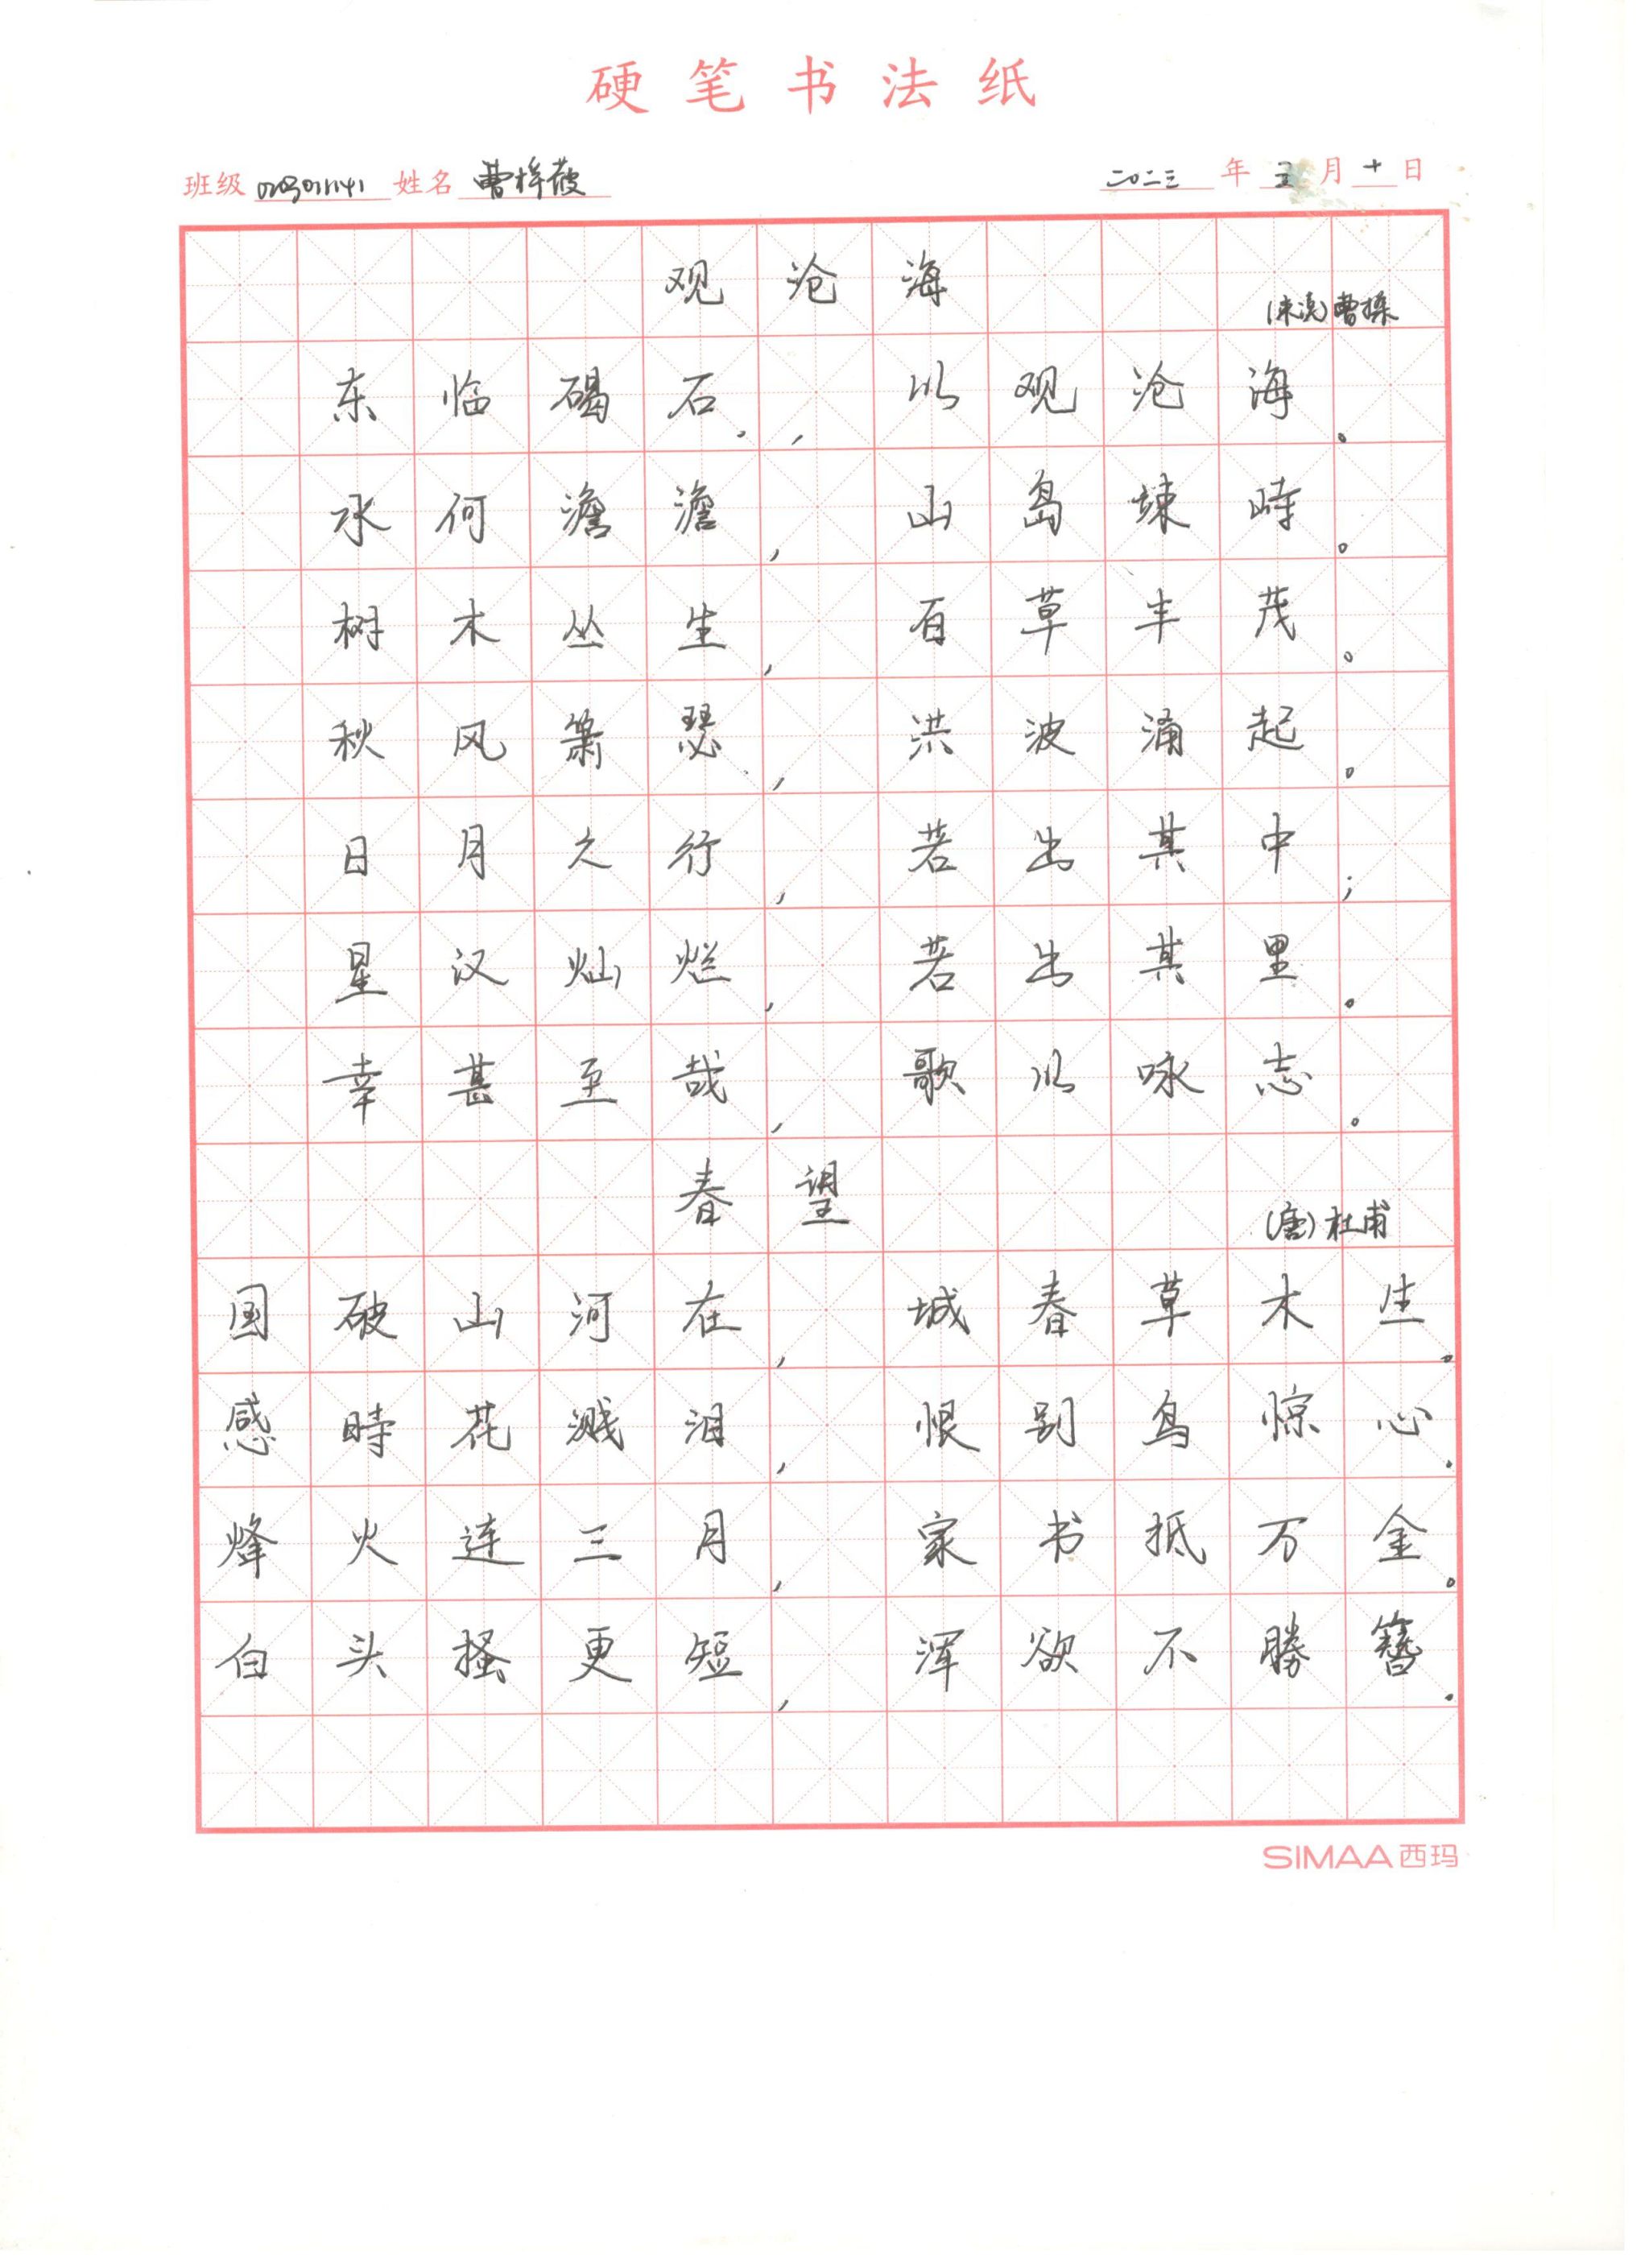 硬笔书法纸
班级 姓名 曹梓薇 二〇二三年 五月十日
观沧海
(东汉)曹操
东临碣石，以观沧海。
水何澹澹，山岛竦峙。
树木丛生，百草丰茂。
秋风萧瑟，洪波涌起。
日月之行，若出其中；
星汉灿烂，若出其里。
幸甚至哉，歌以咏志。
春望
(唐)杜甫
国破山河在，城春草木生。
感時花溅泪，恨别鸟惊心.
烽火连三月，家书抵万金。
白头搔更短，浑欲不勝簪.
SIMAA西玛